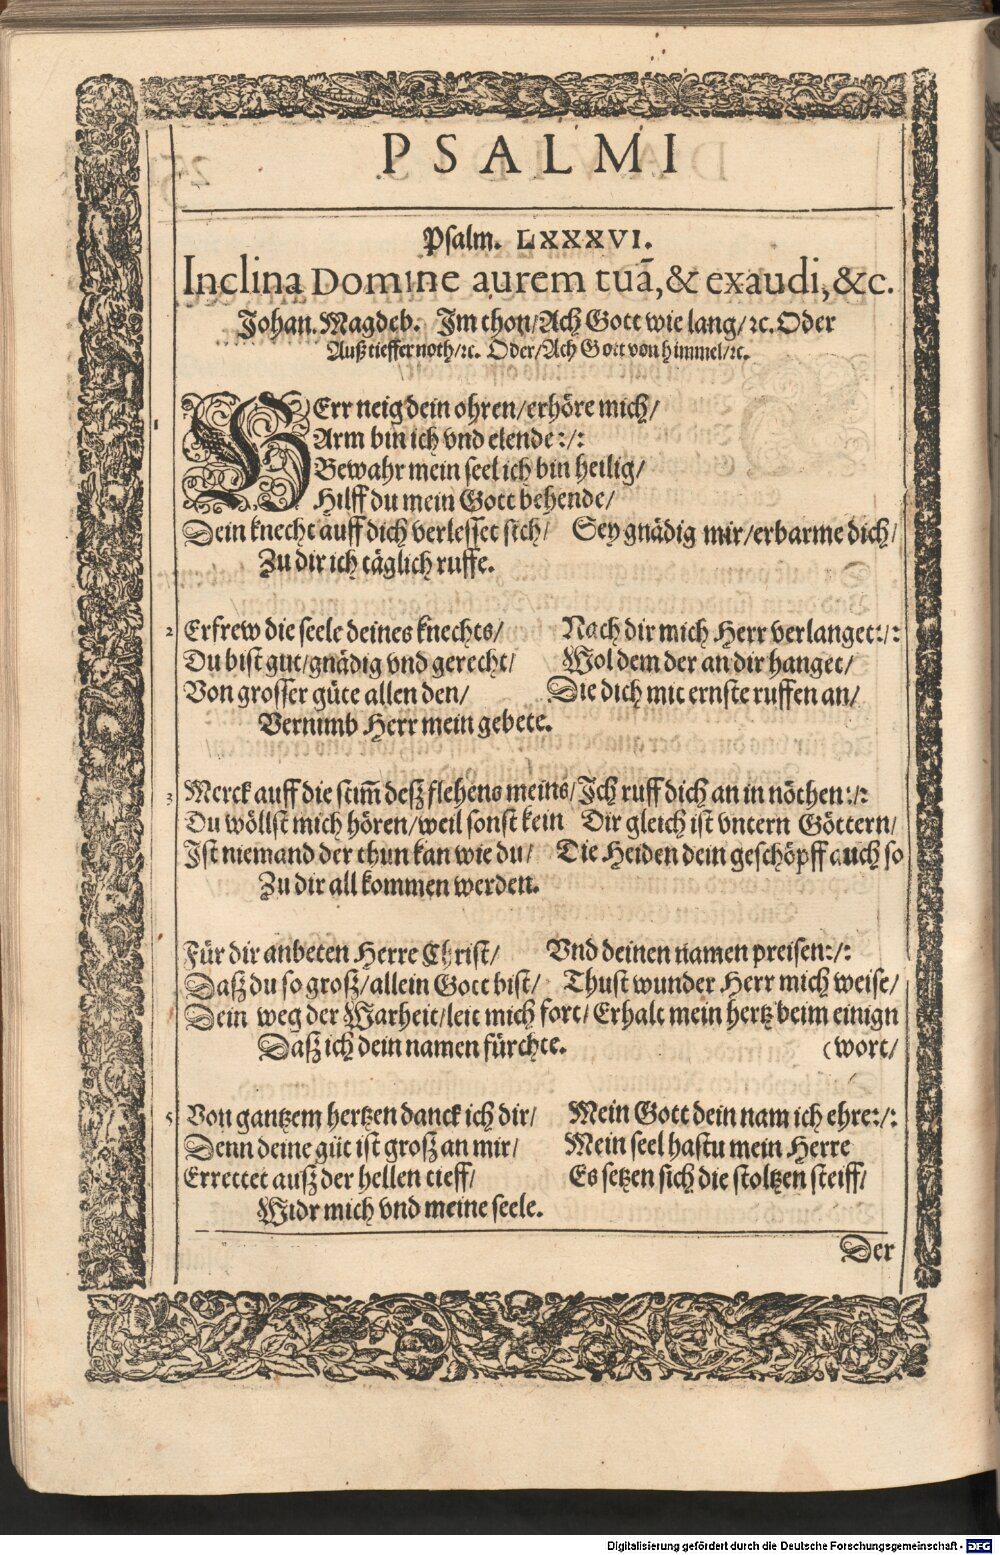 PSALMI
Psalm. LXXXVI.
Inclina Domine aurem tuā, & exaudi, &c.
Johan. Magdeb. Im thon/Ach Gott wie lang/ꝛc. Oder
Auß tieffer noth/ꝛc. Oder/Ach Gott von himmel/ꝛc.
HErr neig dein ohren/erhöre mich/
Arm bin ich vnd elende:/:
Bewahr mein seel ich bin heilig/
Hilff du mein Gott behende/
Dein knecht auff dich verlesset sich/ Sey gnädig mir/erbarme dich/
Zu dir ich täglich ruffe.
2 Erfrew die seele deines knechts/ Nach dir mich Herr verlanget:/:
Du bist gut/gnädig vnd gerecht/ Wol dem der an dir hanget/
Von grosser güte allen den/ Die dich mit ernste ruffen an/
Vernimb Herr mein gebete.
3 Merck auff die stim̄ desz flehens meins/Ich ruff dich an in nöthen:/:
Du wöllst mich hören/weil sonst kein Dir gleich ist vntern Göttern/
Ist niemand der thun kan wie du/ Die Heiden dein geschöpff auch so
Zu dir all kommen werden.
Für dir anbeten Herre Christ/ Vnd deinen namen preisen:/:
Daß du so groß/allein Gott bist/ Thust wunder Herr mich weise/
Dein weg der Warheit/leit mich fort/ Erhalt mein hertz beim einign
Daß ich dein namen fürchte. (wort/
5 Von gantzem hertzen danck ich dir/ Mein Gott dein nam ich ehre:/:
Denn deine güt ist groß an mir/ Mein seel hastu mein Herre
Errettet auß der hellen tieff/ Es setzen sich die stoltzen steiff/
Widr mich vnd meine seele.
Der
Digitalisierung gefördert durch die Deutsche Forschungsgemeinschaft - DFG